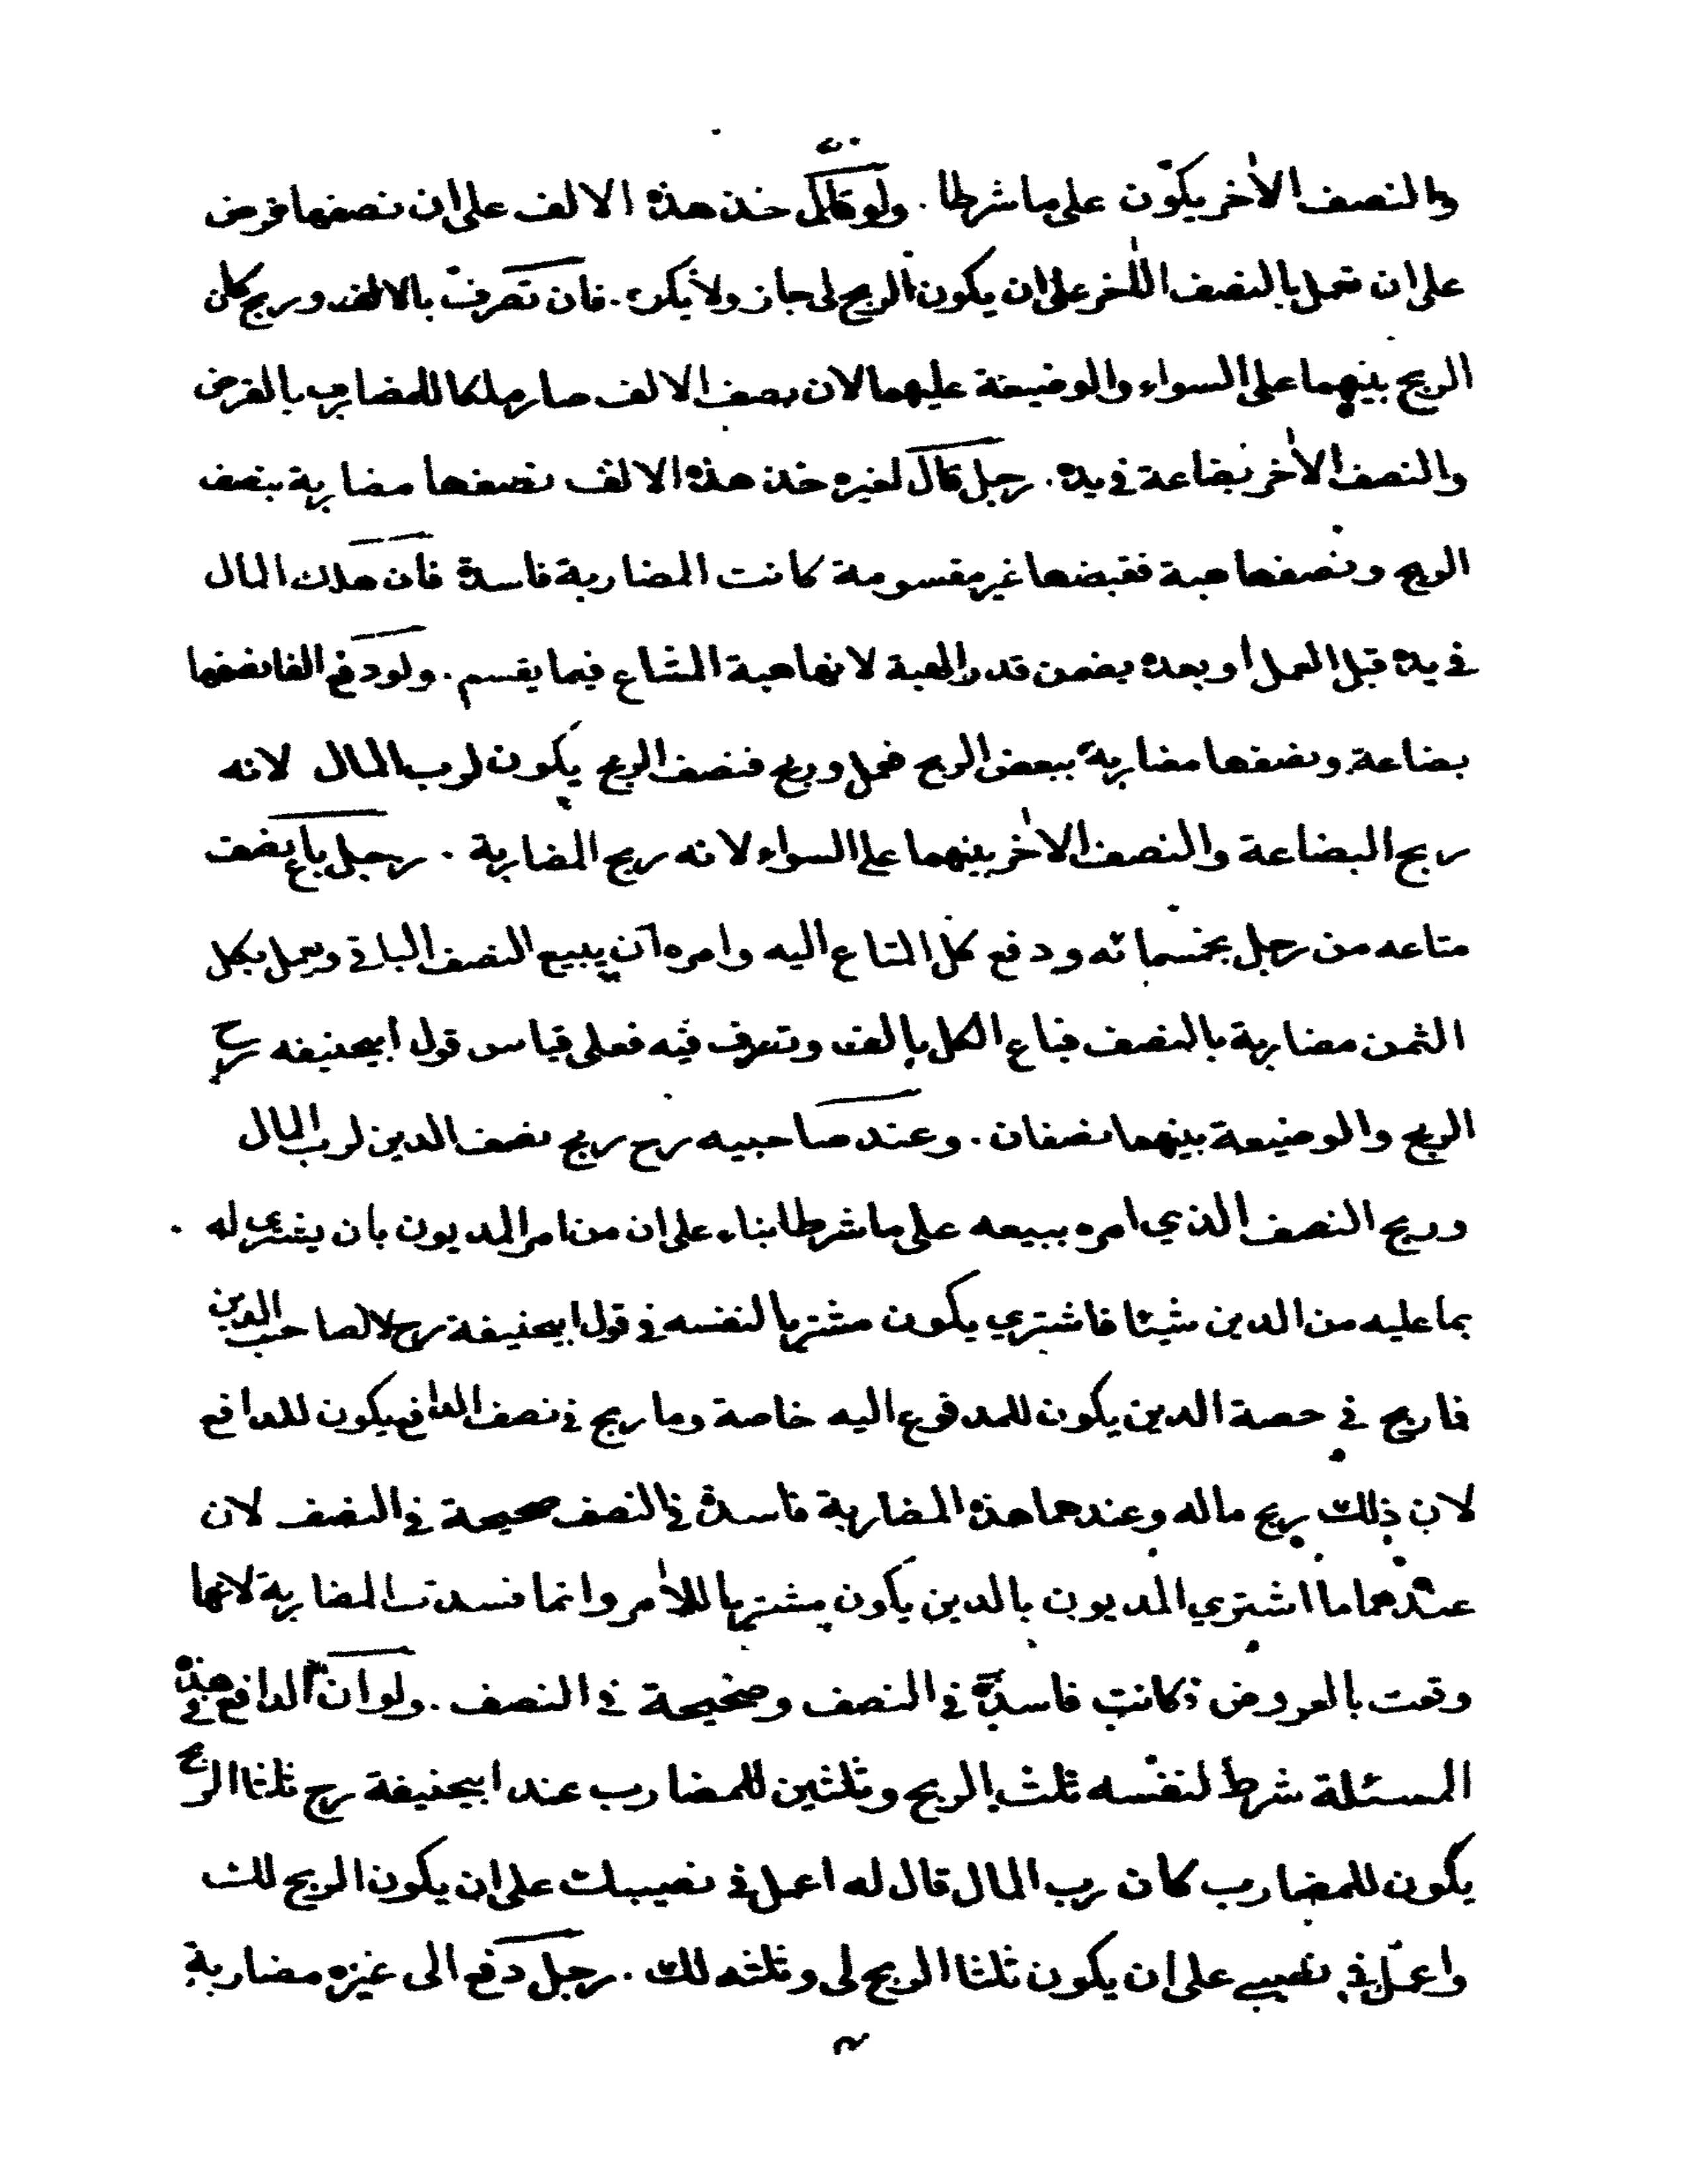 والنصف الآخر يكون على ما شرطا . ولو قال خذ هذه الالف على ان نصفها قرض
على ان تعمل بالنصف الآخر على ان يكون الربح لى جاز ولا يكره . فان تصرف بالالف وربح كان
الربح بينهما على السواء والوضيعة عليهما لان نصف الالف صار ملكا للمضارب بالقرض
والنصف الآخر بضاعة فى يده . رجل قال لغيره خذ هذه الالف نصفها مضاربة بنصف
الربح ونصفها هبة فقبضها غير مقسومة كانت المضاربة فاسدة فان هلك المال
فى يده قبل العمل او بعده يضمن قدر الهبة لانها هبة المشاع فيما يقسم . ولو دفع الفا نصفها
بضاعة ونصفها مضاربة ببعض الربح فعمل وربح فنصف الربح يكون لرب المال لانه
ربح البضاعة والنصف الآخر بينهما على السواء لانه ربح المضاربة . رجل باع نصف
متاعه من رجل بخمسمائه ودفع كل المتاع اليه وامره ان يبيع النصف الباقى ويعمل بكل
الثمن مضاربة بالنصف فباع الكل بالف وتصرف فيه فعلى قياس قول ابيحنيفه رح
الربح والوضيعة بينهما نصفان . وعند صاحبيه رح ربح نصف الدين لرب المال
وربح النصف الذي امره ببيعه على ما شرطا بناء على ان من امر المديون بان يشترى له .
بما عليه من الدين شيئا فاشتري يكون مشتريا لنفسه فى قول ابيحنيفة رح لا لصاحب الدين
فما ربح فى حصة الدين يكون للمدفوع اليه خاصة وما ربح فى نصف الدافع يكون للدافع
لان ذلك ربح ماله وعندهما هذه المضاربة فاسدة فى النصف صحيحة فى النصف لان
عندهما ما اشتري المديون بالدين يكون مشتريا للآمر وانما فسدت المضاربة لانها
وقعت بالعروض فكانت فاسدة فى النصف وصحيحة فى النصف . ولو ان الدافع فى هذه
المسئلة شرط لنفسه ثلث الربح وثلثين للمضارب عند ابيحنيفة رح ثلثا الربح
يكون للمضارب كان رب المال قال له اعمل فى نصيبك على ان يكون الربح لك
واعمل فى نصيبى على ان يكون ثلثا الربح لى وثلثه لك . رجل دفع الى غيره مضاربة